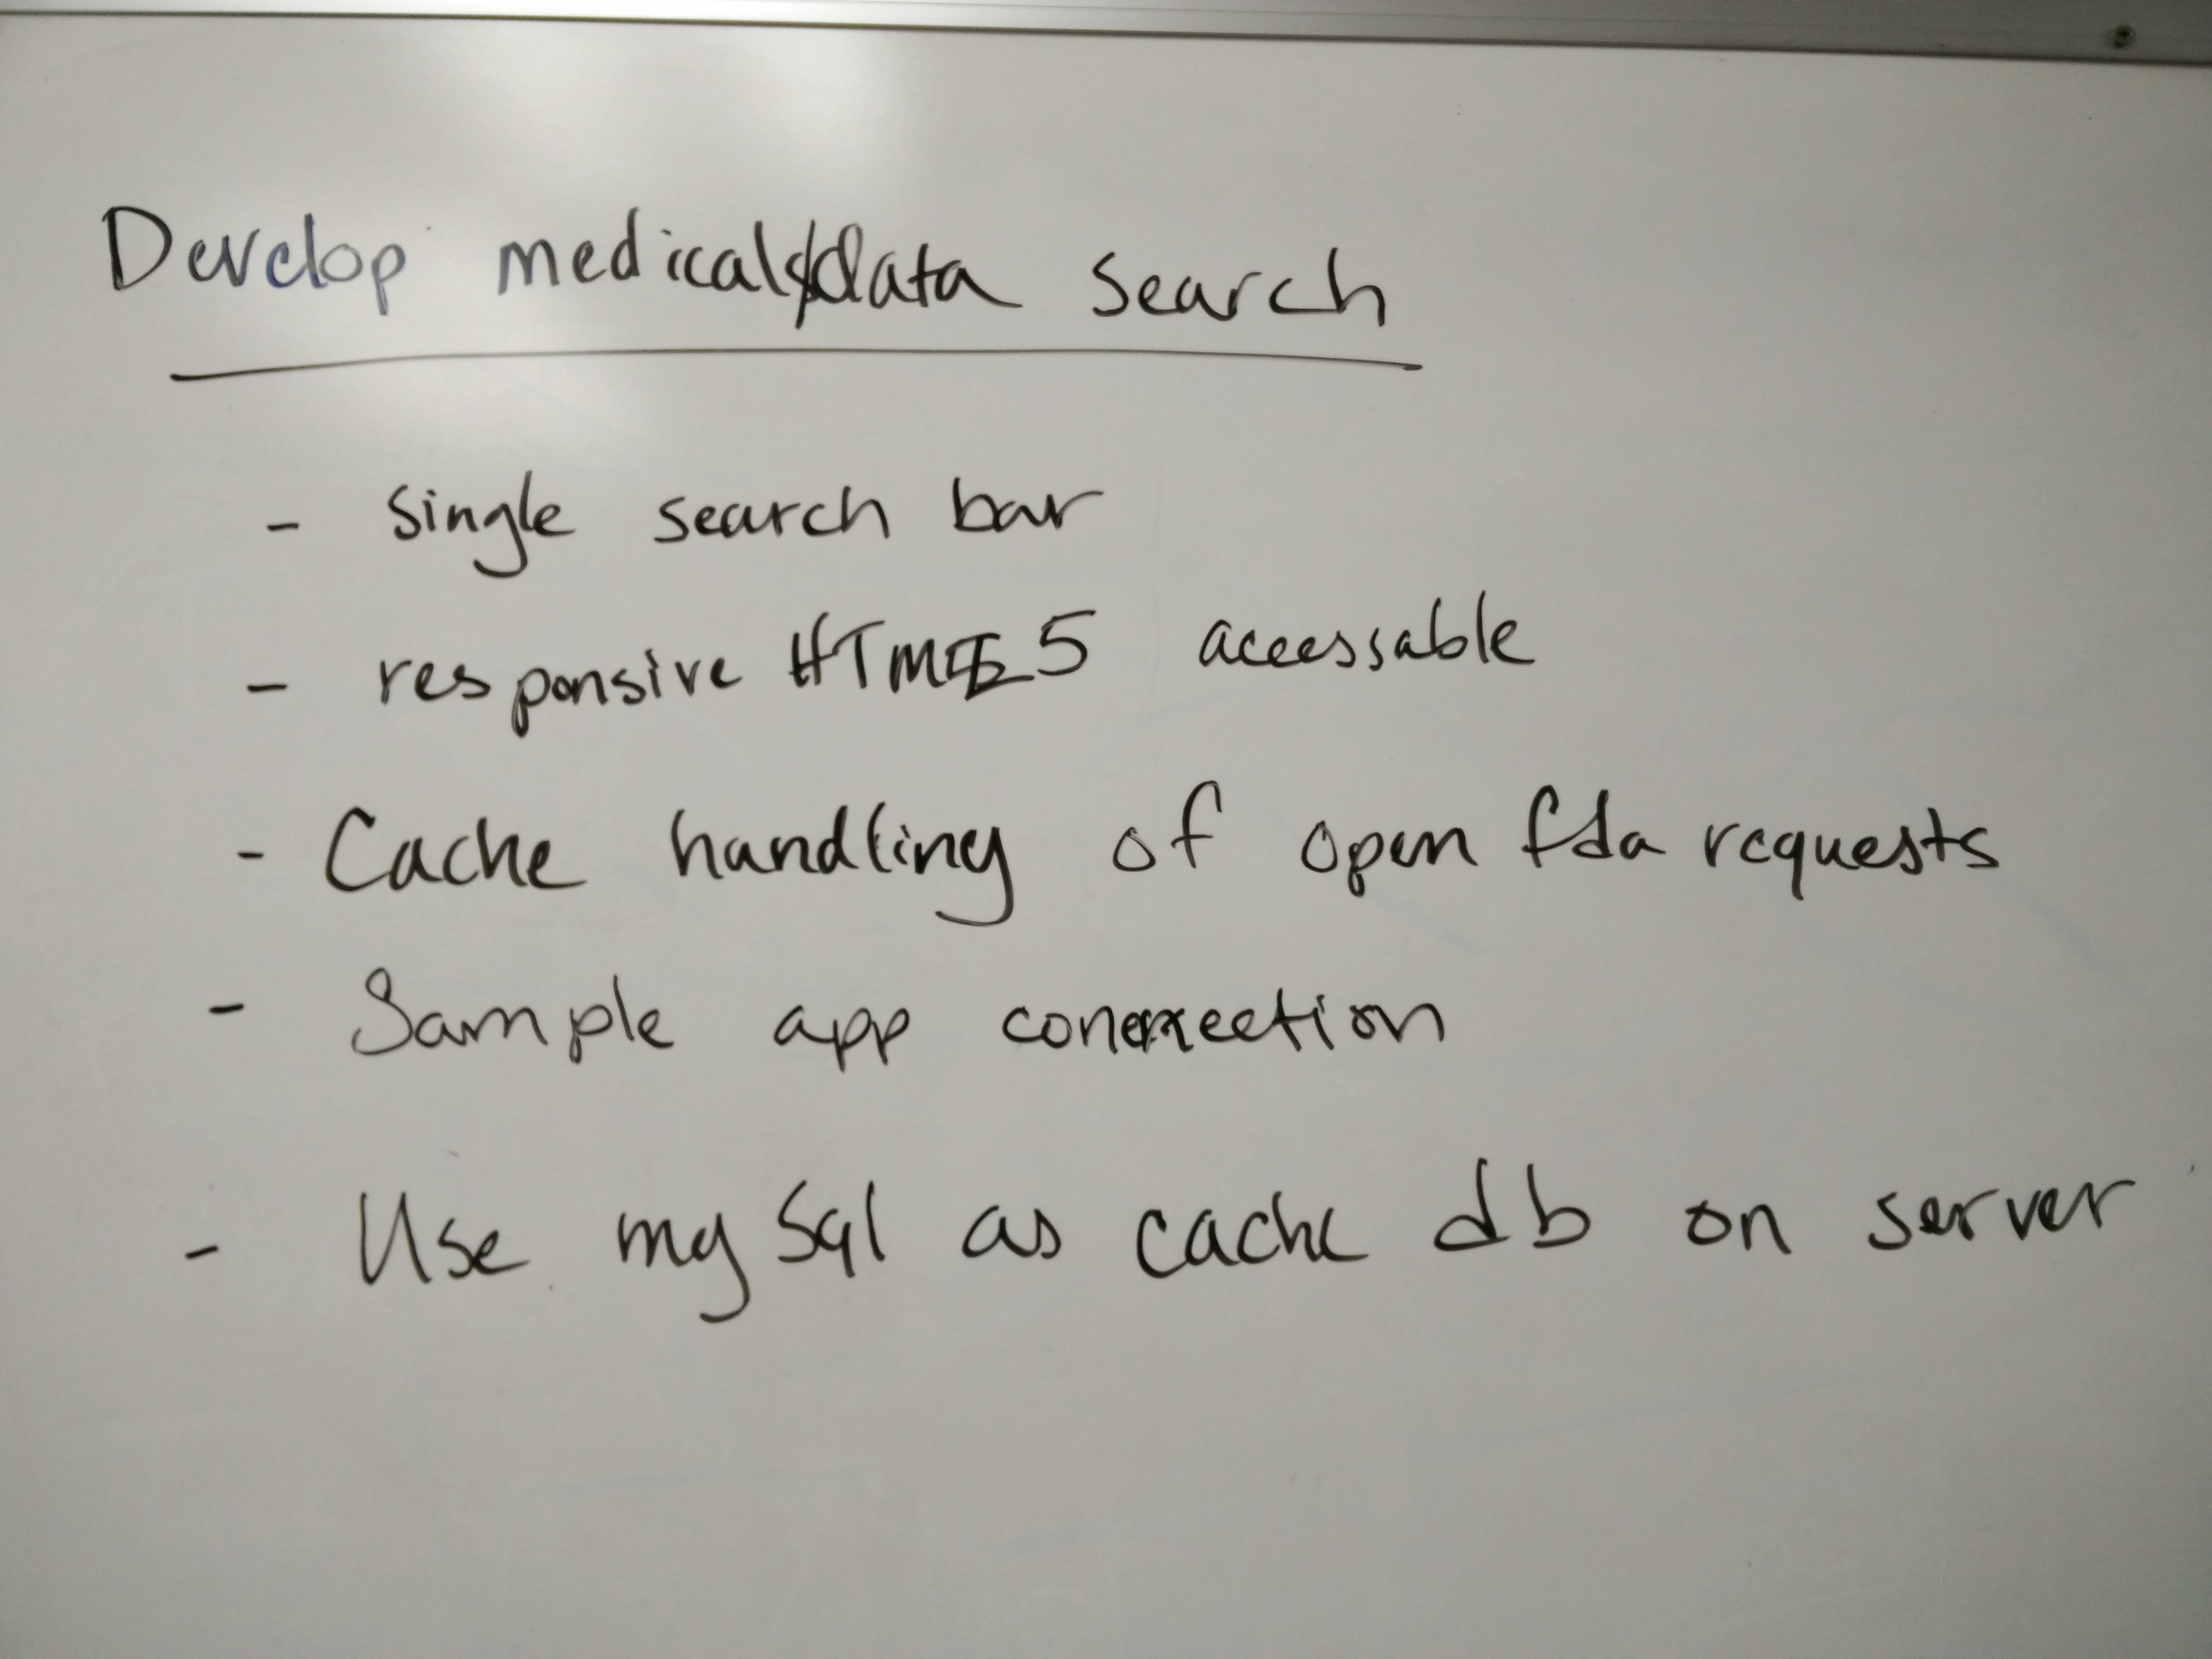 Develop medical data search
- single search bar
- responsive HTML5 accessable
- Cache handling of open fda requests
- Sample app connection
- Use mySql as cache db on server